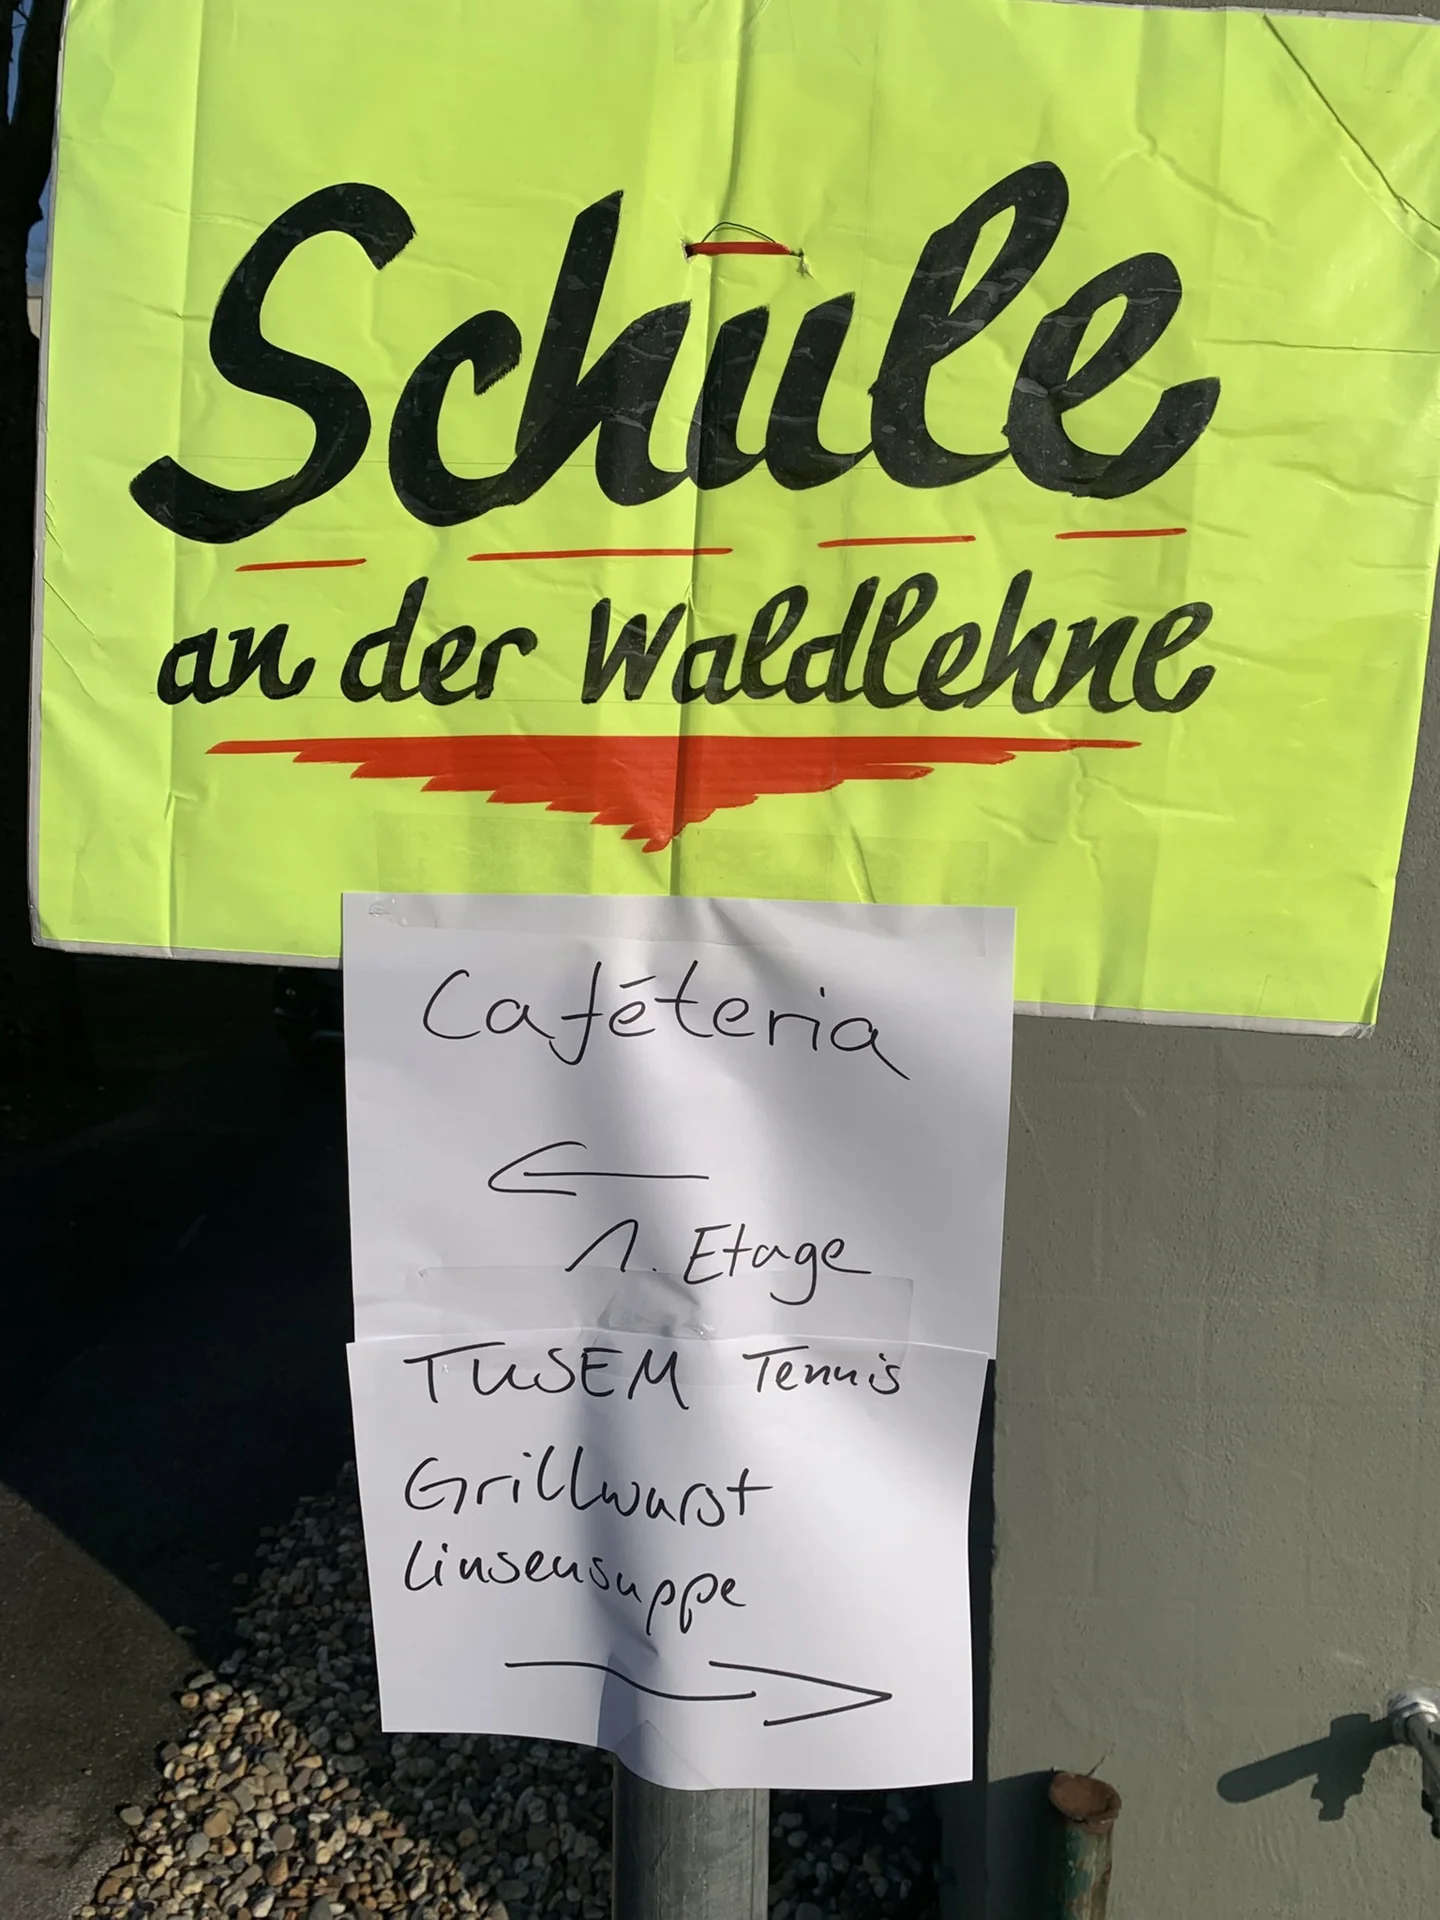 Schule
an der Waldlehne
Caféteria
1. Etage
TUSEM Tennis
Grillwurst
Linsensuppe